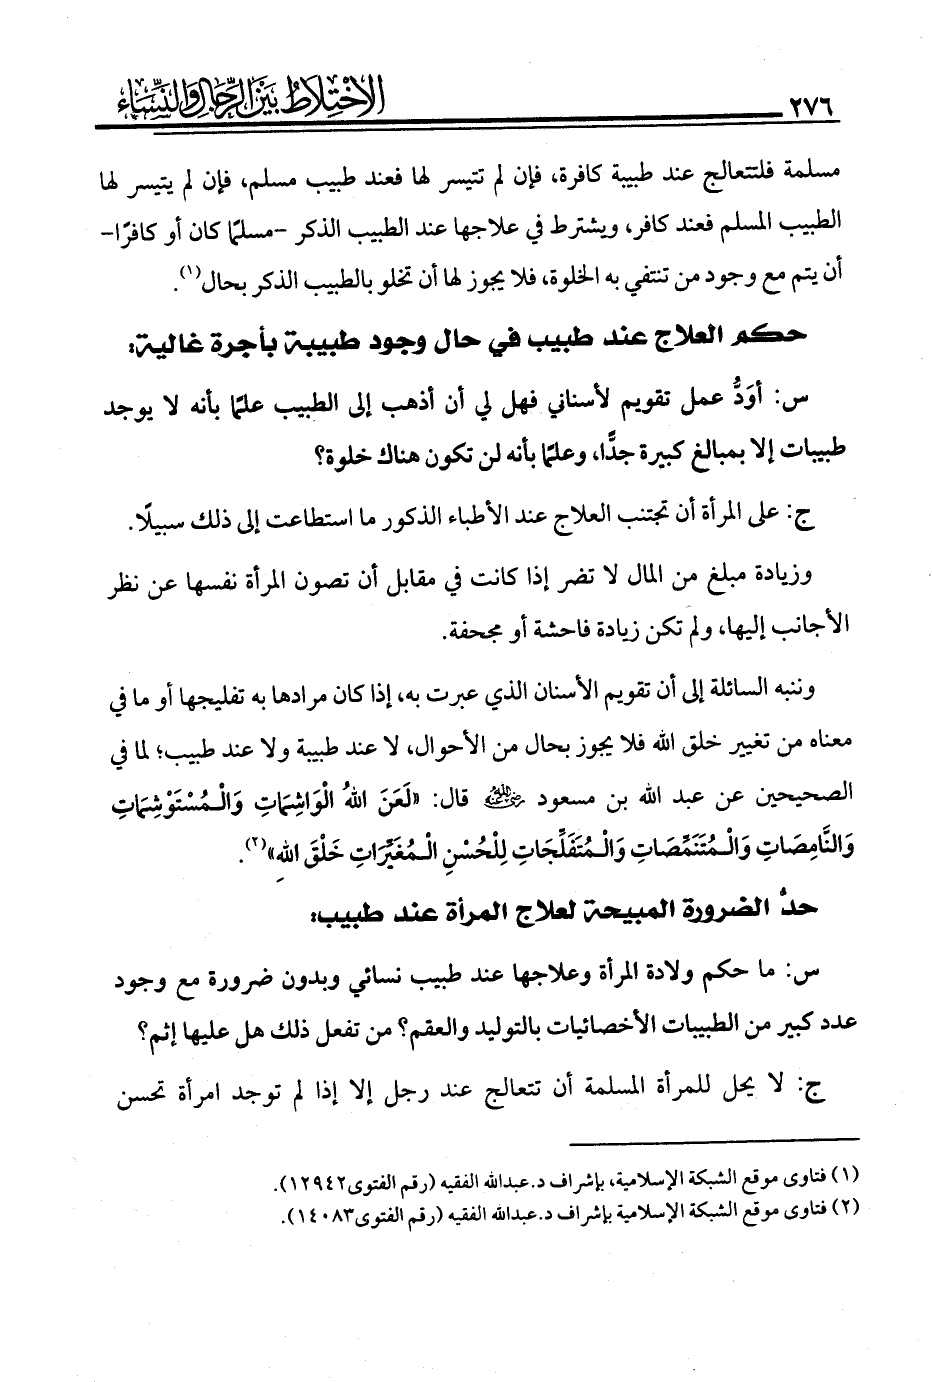 ٢٧٦
الاختلاط بين الرجال والنساء
مسلمة فلتتعالج عند طبيبة كافرة، فإن لم تتيسر لها فعند طبيب مسلم، فإن لم يتيسر لها
الطبيب المسلم فعند كافر، ويشترط في علاجها عند الطبيب الذكر -مسلمًا كان أو كافرًا-
أن يتم مع وجود من تنتفي به الخلوة، فلا يجوز لها أن تخلو بالطبيب الذكر بحال(١).
حكم العلاج عند طبيب في حال وجود طبيبة بأجرة غالية:
س: أوَدُّ عمل تقويم لأسناني فهل لي أن أذهب إلى الطبيب علمًا بأنه لا يوجد
طبيبات إلا بمبالغ كبيرة جدًّا، وعلمًا بأنه لن تكون هناك خلوة؟
ج: على المرأة أن تجتنب العلاج عند الأطباء الذكور ما استطاعت إلى ذلك سبيلًا.
وزيادة مبلغ من المال لا تضر إذا كانت في مقابل أن تصون المرأة نفسها عن نظر
الأجانب إليها، ولم تكن زيادة فاحشة أو مجحفة.
وننبه السائلة إلى أن تقويم الأسنان الذي عبرت به، إذا كان مرادها به تفليجها أو ما في
معناه من تغيير خلق الله فلا يجوز بحال من الأحوال، لا عند طبيبة ولا عند طبيب؛ لما في
الصحيحين عن عبد الله بن مسعود رضي الله عنه قال: «لَعَنَ اللهُ الْوَاشِمَاتِ وَالْمُسْتَوْشِمَاتِ
وَالنَّامِصَاتِ وَالْمُتَنَمِّصَاتِ وَالْمُتَفَلِّجَاتِ لِلْحُسْنِ الْمُغَيِّرَاتِ خَلْقَ اللهِ»(٢).
حدُّ الضرورة المبيحة لعلاج المرأة عند طبيب:
س: ما حكم ولادة المرأة وعلاجها عند طبيب نسائي وبدون ضرورة مع وجود
عدد كبير من الطبيبات الأخصائيات بالتوليد والعقم؟ من تفعل ذلك هل عليها إثم؟
ج: لا يحل للمرأة المسلمة أن تتعالج عند رجل إلا إذا لم توجد امرأة تحسن
(١) فتاوى موقع الشبكة الإسلامية، بإشراف د.عبدالله الفقيه (رقم الفتوى١٢٩٤٢).
(٢) فتاوى موقع الشبكة الإسلامية بإشراف د.عبدالله الفقيه (رقم الفتوى١٤٠٨٣).